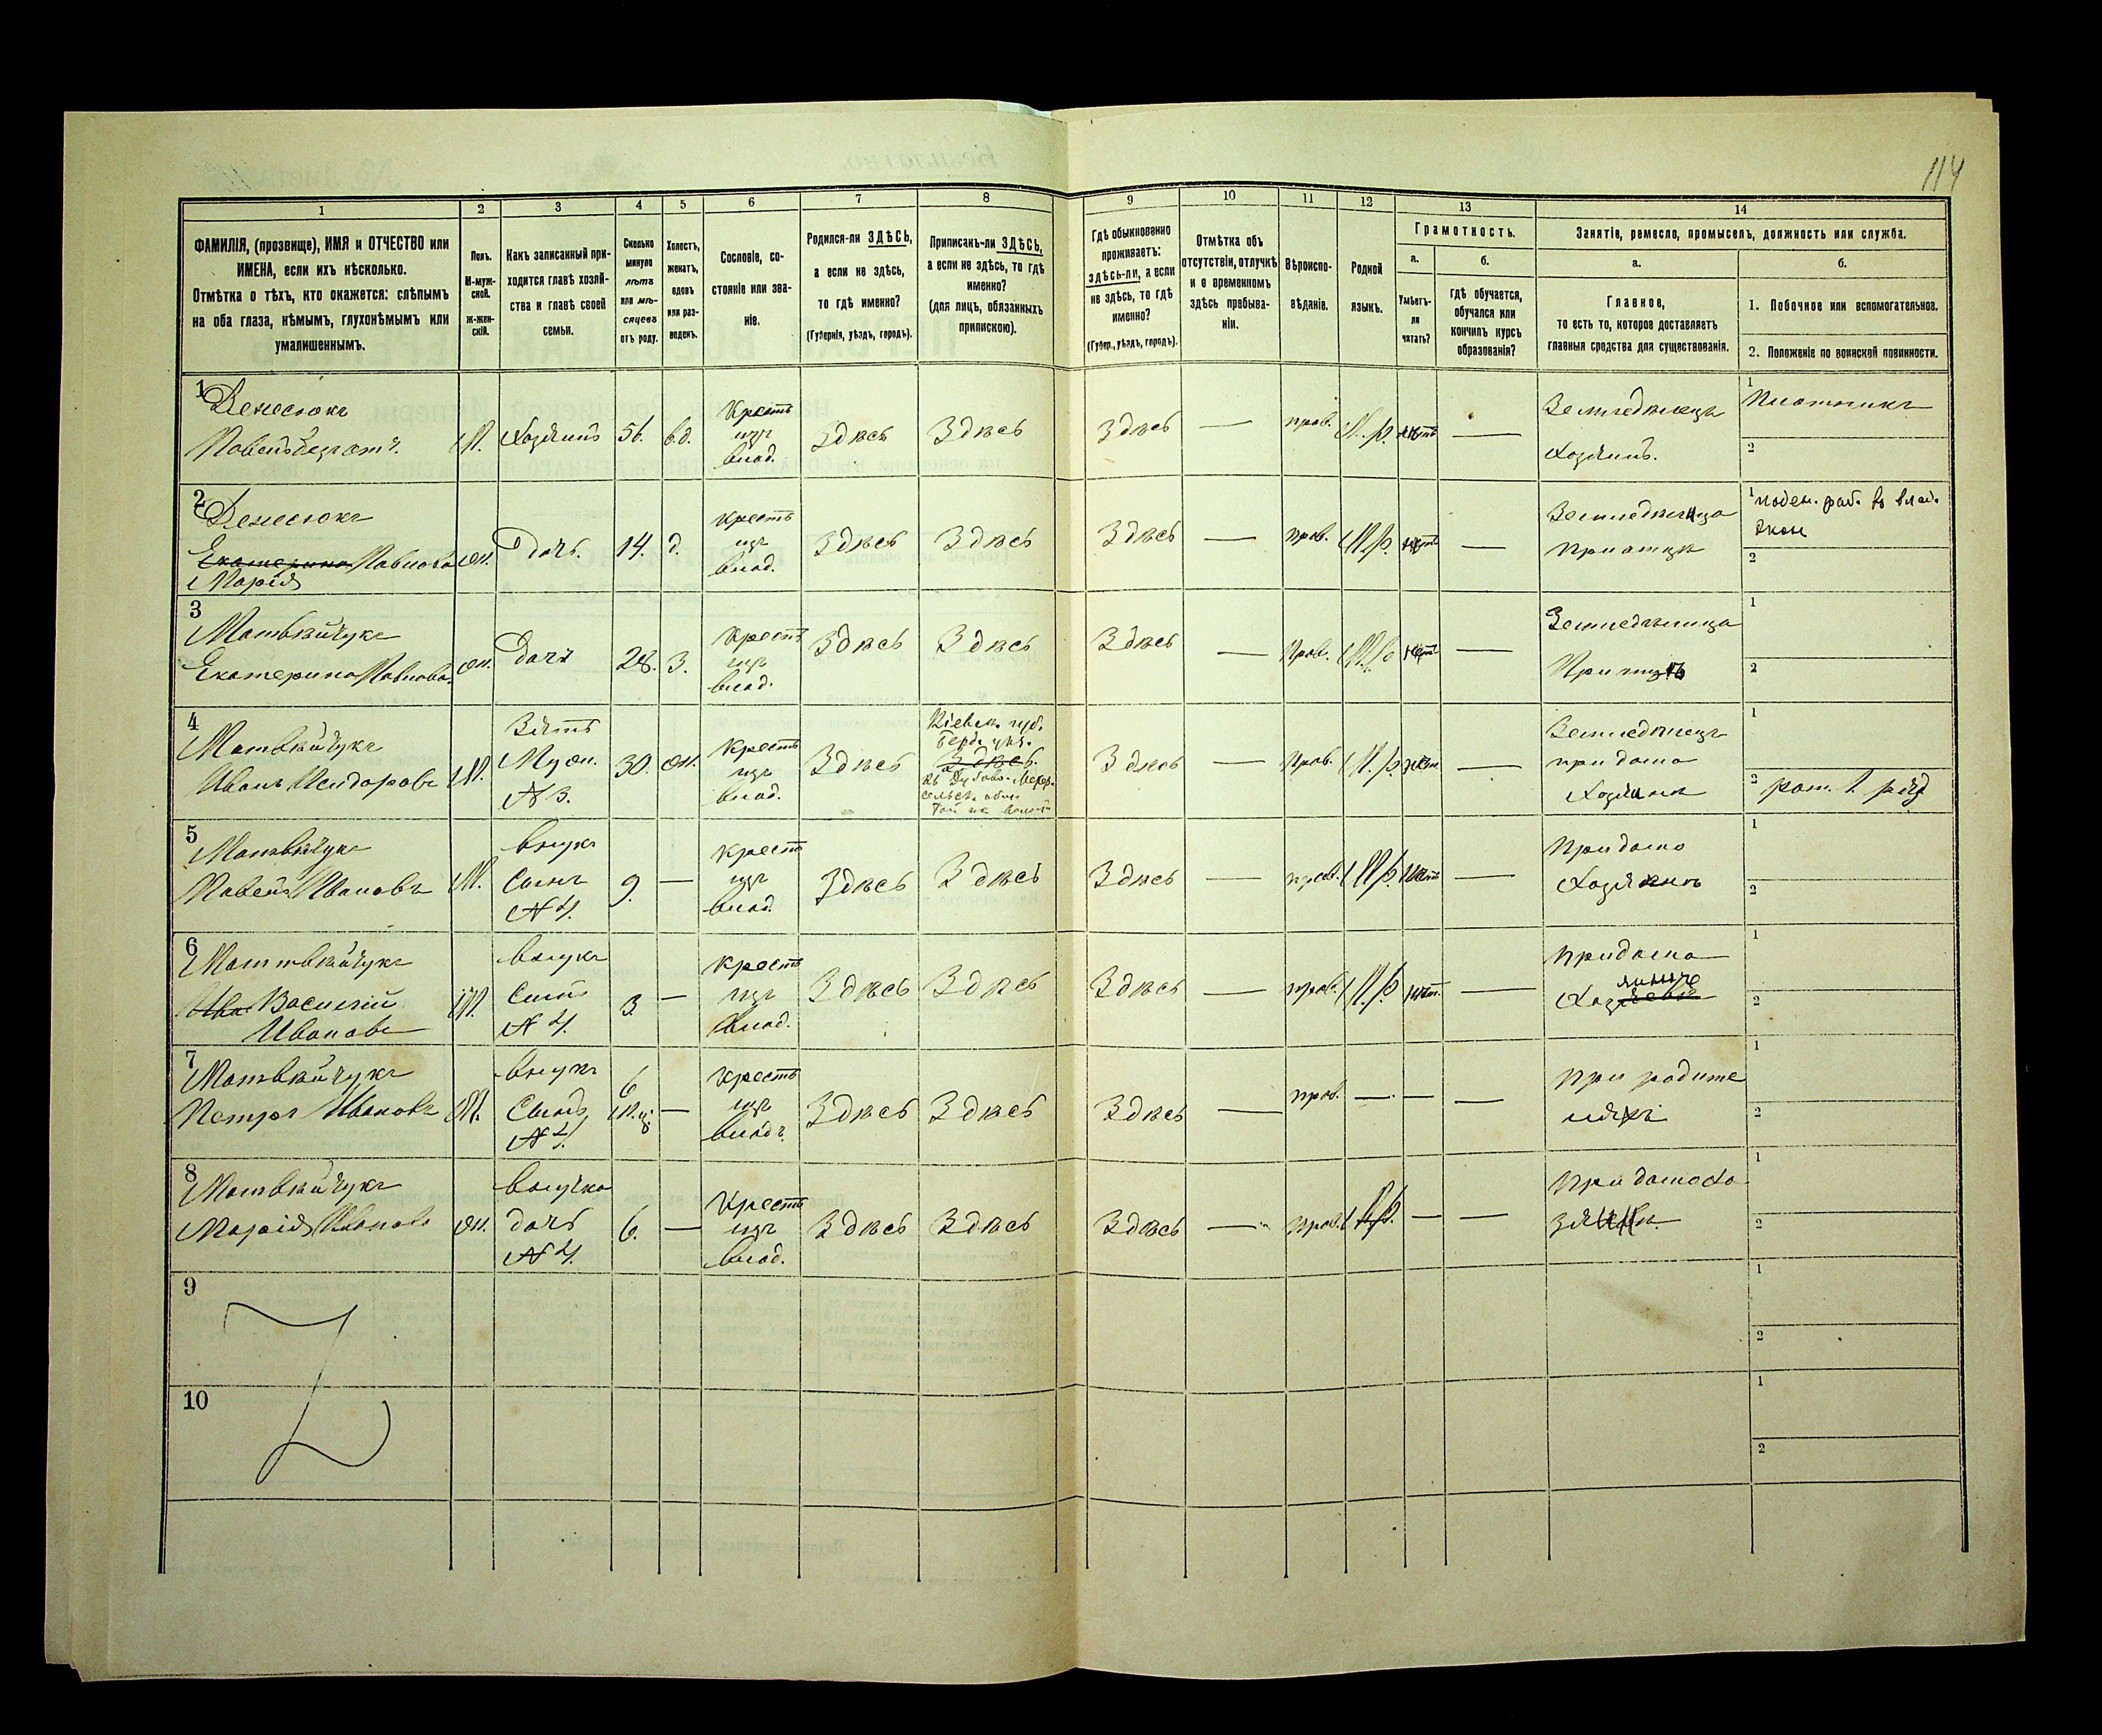 114
1
2
3
4
5
6
7
8
9
10
11
12
13
14
ФАМИЛІЯ, (прозвище), ИМЯ и ОТЧЕСТВО или
ИМЕНА, если ихъ нѣсколько.
Отмѣтка о тѣхъ, кто окажется: слѣпымъ
на оба глаза, нѣмымъ, глухонѣмымъ или
умалишеннымъ.
Полъ.
М-муж-
ской.
Ж-жен-
скій.
Какъ записанный при-
ходится главѣ хозяй-
ства и главѣ своей
семьи.
Сколько
минуло
лѣтъ
или мѣ-
сяцевъ
отъ роду.
Холостъ,
женатъ,
вдовъ
или раз-
веденъ.
Сословіе, со-
стояніе или зва-
ніе.
Родился-ли ЗДѢСЬ,
а если не здѣсь,
то гдѣ именно?
(Губернія, уѣздъ, городъ).
Приписанъ-ли ЗДѢСЬ,
а если не здѣсь, то гдѣ
именно?
(для лицъ, обязанныхъ
припискою).
Гдѣ обыкновенно
проживаетъ:
здѣсь-ли, а если
не здѣсь, то гдѣ
именно?
(Губер., уѣздъ, городъ).
Отмѣтка объ
отсутствіи, отлучкѣ
и о временномъ
здѣсь пребыва-
ніи.
Вѣроиспо-
вѣданіе.
Родной
языкъ.
Грамотность.
а.
Умѣетъ-
ли
читать?
б.
Гдѣ обучается,
обучался или
кончилъ курсъ
образованія?
Занятіе, ремесло, промыселъ, должность или служба.
а.
Главное,
то есть то, которое доставляетъ
главныя средства для существованія.
б.
1. Побочное или вспомогательное.
2. Положеніе по воинской повинности.
1
Денесюкъ
Павелъ
М. Хозяинъ 56. вд.
Крестъ
изъ
влад.
Здѣсь Здѣсь Здѣсь — прав. М.р. нѣтъ —
Земледѣлецъ
Хозяинъ.
1 Плотникъ
2
2
Денесюкъ
Екатерина Павлова
Марія
ж. Дочь. 14. д.
крестъ
изъ
влад.
Здѣсь Здѣсь Здѣсь — прав. М.р. нѣтъ —
Земледѣлица
при отцѣ
1 поден. раб. въ влад.
экон
2
3
Матвѣйчукъ
Екатерина Павлова.
ж. дочь 28. З.
Крестъ
изъ
влад.
Здѣсь Здѣсь Здѣсь — Прав. М.р нѣтъ —
Земледѣлица
1
2
4
Матвѣйчукъ
Иванъ Исидоровъ
М.
Зять
Муж.
№ 3.
30. ж.
Крестъ
изъ
влад.
Здѣсь
Кіевск. губ.
Берд. уѣз.
Здѣсь.
сельск. общ.
той же волости
Здѣсь — Прав. М.р. —
Земледѣлецъ
при домо
Хозяинъ
1
2 рат. 1. ряд
5
Матвѣйчукъ
Павелъ Ивановъ
М.
внукъ
Сынъ
№ 4.
9. —
крестъ
изъ
влад.
Здѣсь Здѣсь Здѣсь — прав. М.р. нѣтъ —
При домо
1
2
6
Матвѣйчукъ
Ива Василій
Ивановъ
М.
внукъ
Сынъ
№ 4.
3. —
крестъ
изъ
влад.
Здѣсь Здѣсь Здѣсь — прав. М.р нѣт. —
при домо
1
2
7
Матвѣйчукъ
Петръ Ивановъ
М.
внукъ
Сынъ
№ 4.
6
М.ц. —
крестъ
изъ
владъ.
Здѣсь Здѣсь Здѣсь — прав. — — —
при родите
ляхъ
1
2
8
Матвѣйчукъ
Марія Иванова
ж.
внучка
дочь
№ 4.
6. —
Крестъ
изъ
влад.
Здѣсь Здѣсь Здѣсь — прав. М.р. — —
при домохо
1
2
9
1
2
10
1
2